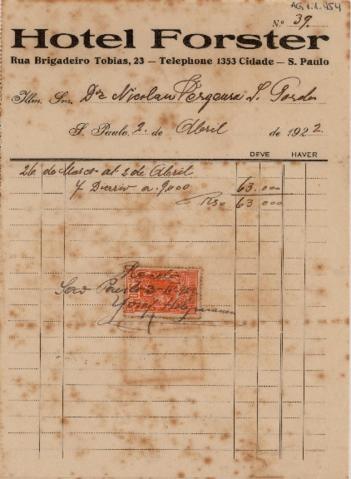 AG.1.1.454
Nº 39
Hotel Forster
Rua Brigadeiro Tobias, 23 — Telephone 1353 Cidade — S. Paulo
Illm. Snr. Dr Nicolau S.
S. Paulo, 2 de Abril de 1922
DEVE HAVER
26 de Março at 2 de Abril
7 Diaria a 9000 63.000
Rs 63 000
São Paulo 2